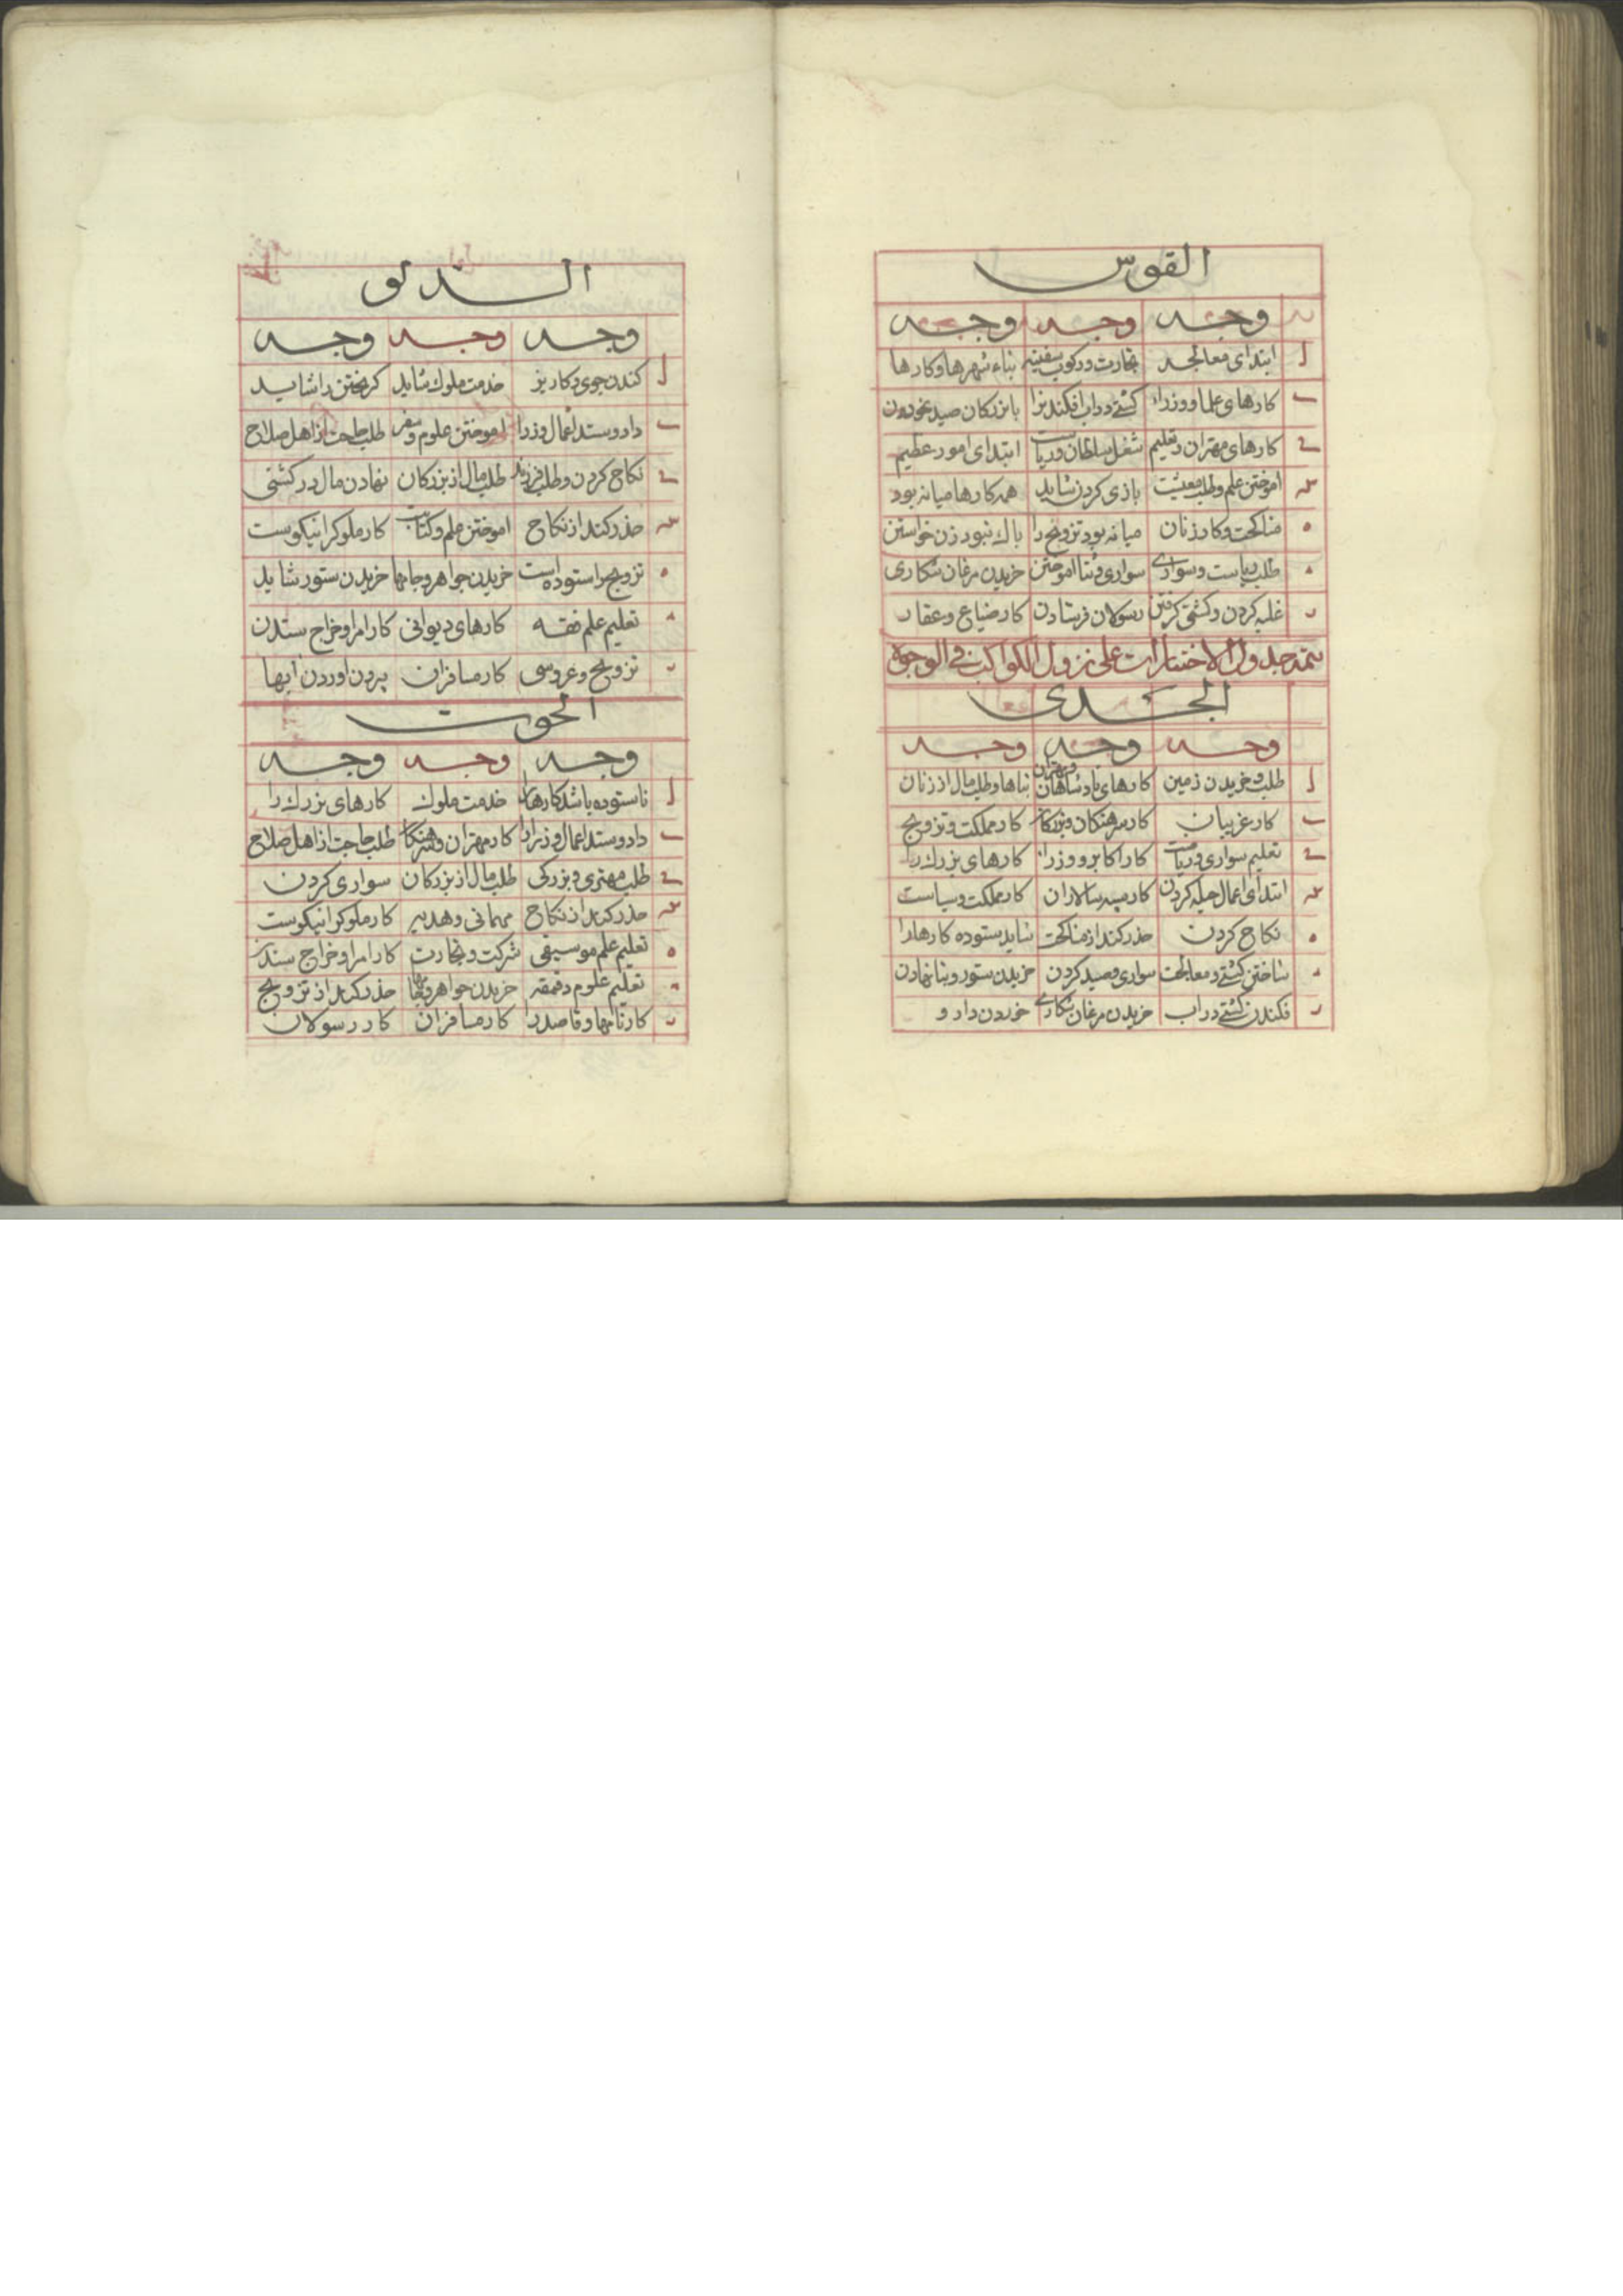 القوس
وجه وجه وجه
ل ابتدای معالجه تجارت ورکوب سفینه بناء شهرها وکارها
ب کارهای علما ووزراء کشتی دراب افکندنرا بابزرکان صید نخوردن
کارهای مهتران وتعلیم شغل سلطان وریاست ابتدای امور عظیم
اموختن علم وطلب معیشت بازی کردن شاید همه کارها میانه بود
ه مناکحت وکار زنان میانه بود تزویج را باک نبود زن خواستن
طلب ریاست وسواری سواری وشنا اموختن خریدن مرغان شکاری
ر غلبه کردن وکشتی کرفتن رسولان فرستادن کار ضیاع وعقار
تتمه جدول الاختیارات علی نزول الکواکب فی الوجوه
الجدی
وجه وجه وجه
ل طلب وخریدن زمین کارهای پادشاهان ومهتران بناها وطلب مال از زنان
ب کار غریبان کار سرهنکان وبزرکان کار مملکت وتزویج
تعلیم سواری وریاست کار اکابر ووزرا کارهای بزرک را
ابتدای اعمال حیله کردن کار سپه سالاران کار مملکت وسیاست
ه نکاح کردن حذر کند از مناکحت شاید ستوده کارها را
ساختن کشتی ومعالجت سواری وصید کردن خریدن ستور وبنا نهادن
ر فکندن کشتی دراب خریدن مرغان شکاری خوردن دارو
الدلو
وجه وجه وجه
ل کندن جوی وکاریز خدمت ملوک شاید کریختن را شاید
ب دادوستد اعمال وزرا اموختن علوم وسفر طلب حاجت از اهل صلاح
نکاح کردن وطلب فرزند طلب مال از بزرکان نهادن مال در کشتی
حذر کند از نکاح اموختن علم وکتابت کار ملوک را نیکوست
ه تزویج را ستوده است خریدن جواهر وجامها خریدن ستور شاید
تعلیم علم فقه کارهای دیوانی کار امرا وخراج ستدن
ر تزویج وعروسی کار مسافران بردن اوردن ابها
الحوت
وجه وجه وجه
ل ناستوده باشد کارها را خدمت ملوک کارهای بزرک را
ب دادوستد اعمال وزرا را کار مهتران طلب حاجت از اهل صلاح
طلب مهتری وبزرکی طلب مال از بزرکان سواری کردن
حذر کند از نکاح مهمانی وهدیه کار ملوک را نیکوست
ه تعلیم علم موسیقی شرکت وتجارت کار امرا وخراج ستدن
تعلیم علوم خریدن جواهر حذر کند از تزویج
ر کار نامها وقاصد را کار مسافران کار رسولان